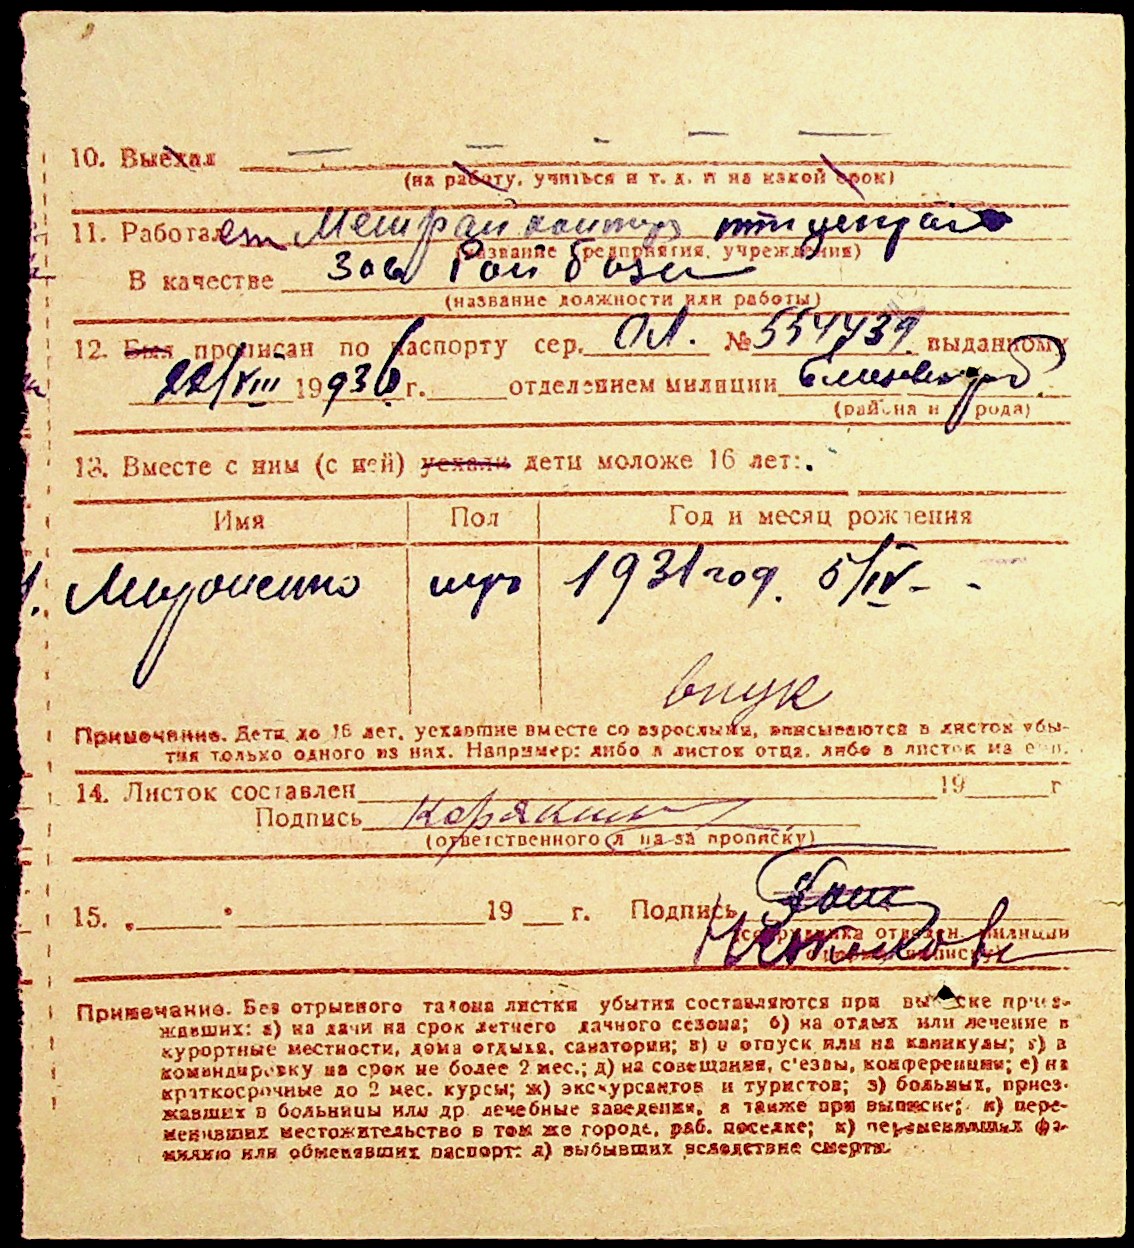 10. Выехал
(на работу, учиться и т. д. и на какой срок)
11. Работает
(название предприятия, учреждения)
В качестве Зав Рай базы
(название должности или работы)
12. Был прописан по паспорту сер. ОЛ. № 554439 выданному
22/VIII 1936 г. отделением милиции
(района и города)
13. Вместе с ним (с ней) уехали дети моложе 16 лет:.
Имя Пол Год и месяц рождения
Мироненко муж 1931 год. 5/IV -
внук
Примечание. Дети до 16 лет, уехавшие вместе со взрослыми, вписываются в листок убы-
тия только одного из них. Например: либо в листок отца, либо в листок матери.
14. Листок составлен 19 г
Подпись Корякин
(ответственного л на за прописку)
15. „ " 19 г. Подпись
(сотрудника отделен. милиции
Примечание. Без отрывного талона листки убытия составляются при выписке приез-
жавших: а) на дачи на срок летнего дачного сезона; б) на отдых или лечение в
курортные местности, дома отдыха, санатории; в) в отпуск или на каникулы; г) в
командировку на срок не более 2 мес.; д) на совещания, с'езды, конференции; е) на
краткосрочные до 2 мес. курсы; ж) экскурсантов и туристов; з) больных, приез-
жавших в больницы или др. лечебные заведения, а также при выписке; и) пере-
менивших местожительство в том же городе, раб. поселке; к) переменивших фа-
милию или обменявших паспорт; л) выбывших вследствие смерти.